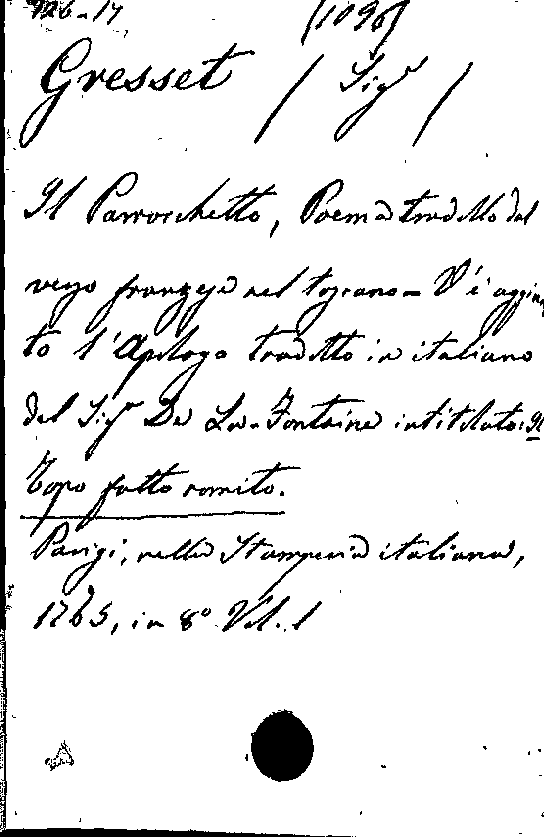 926-17 (1096)
Gresset / Sigr /
Il Parrocchetto, Poema tradotto dal
verso franzese nel toscano - V'è aggiun
to l'Apologo tradotto in italiano
del Sigr De La-Fontaine intitolato: Il
Topo fatto romito.
Parigi, nella Stamperia italiana,
1765, in 8º Vol. 1